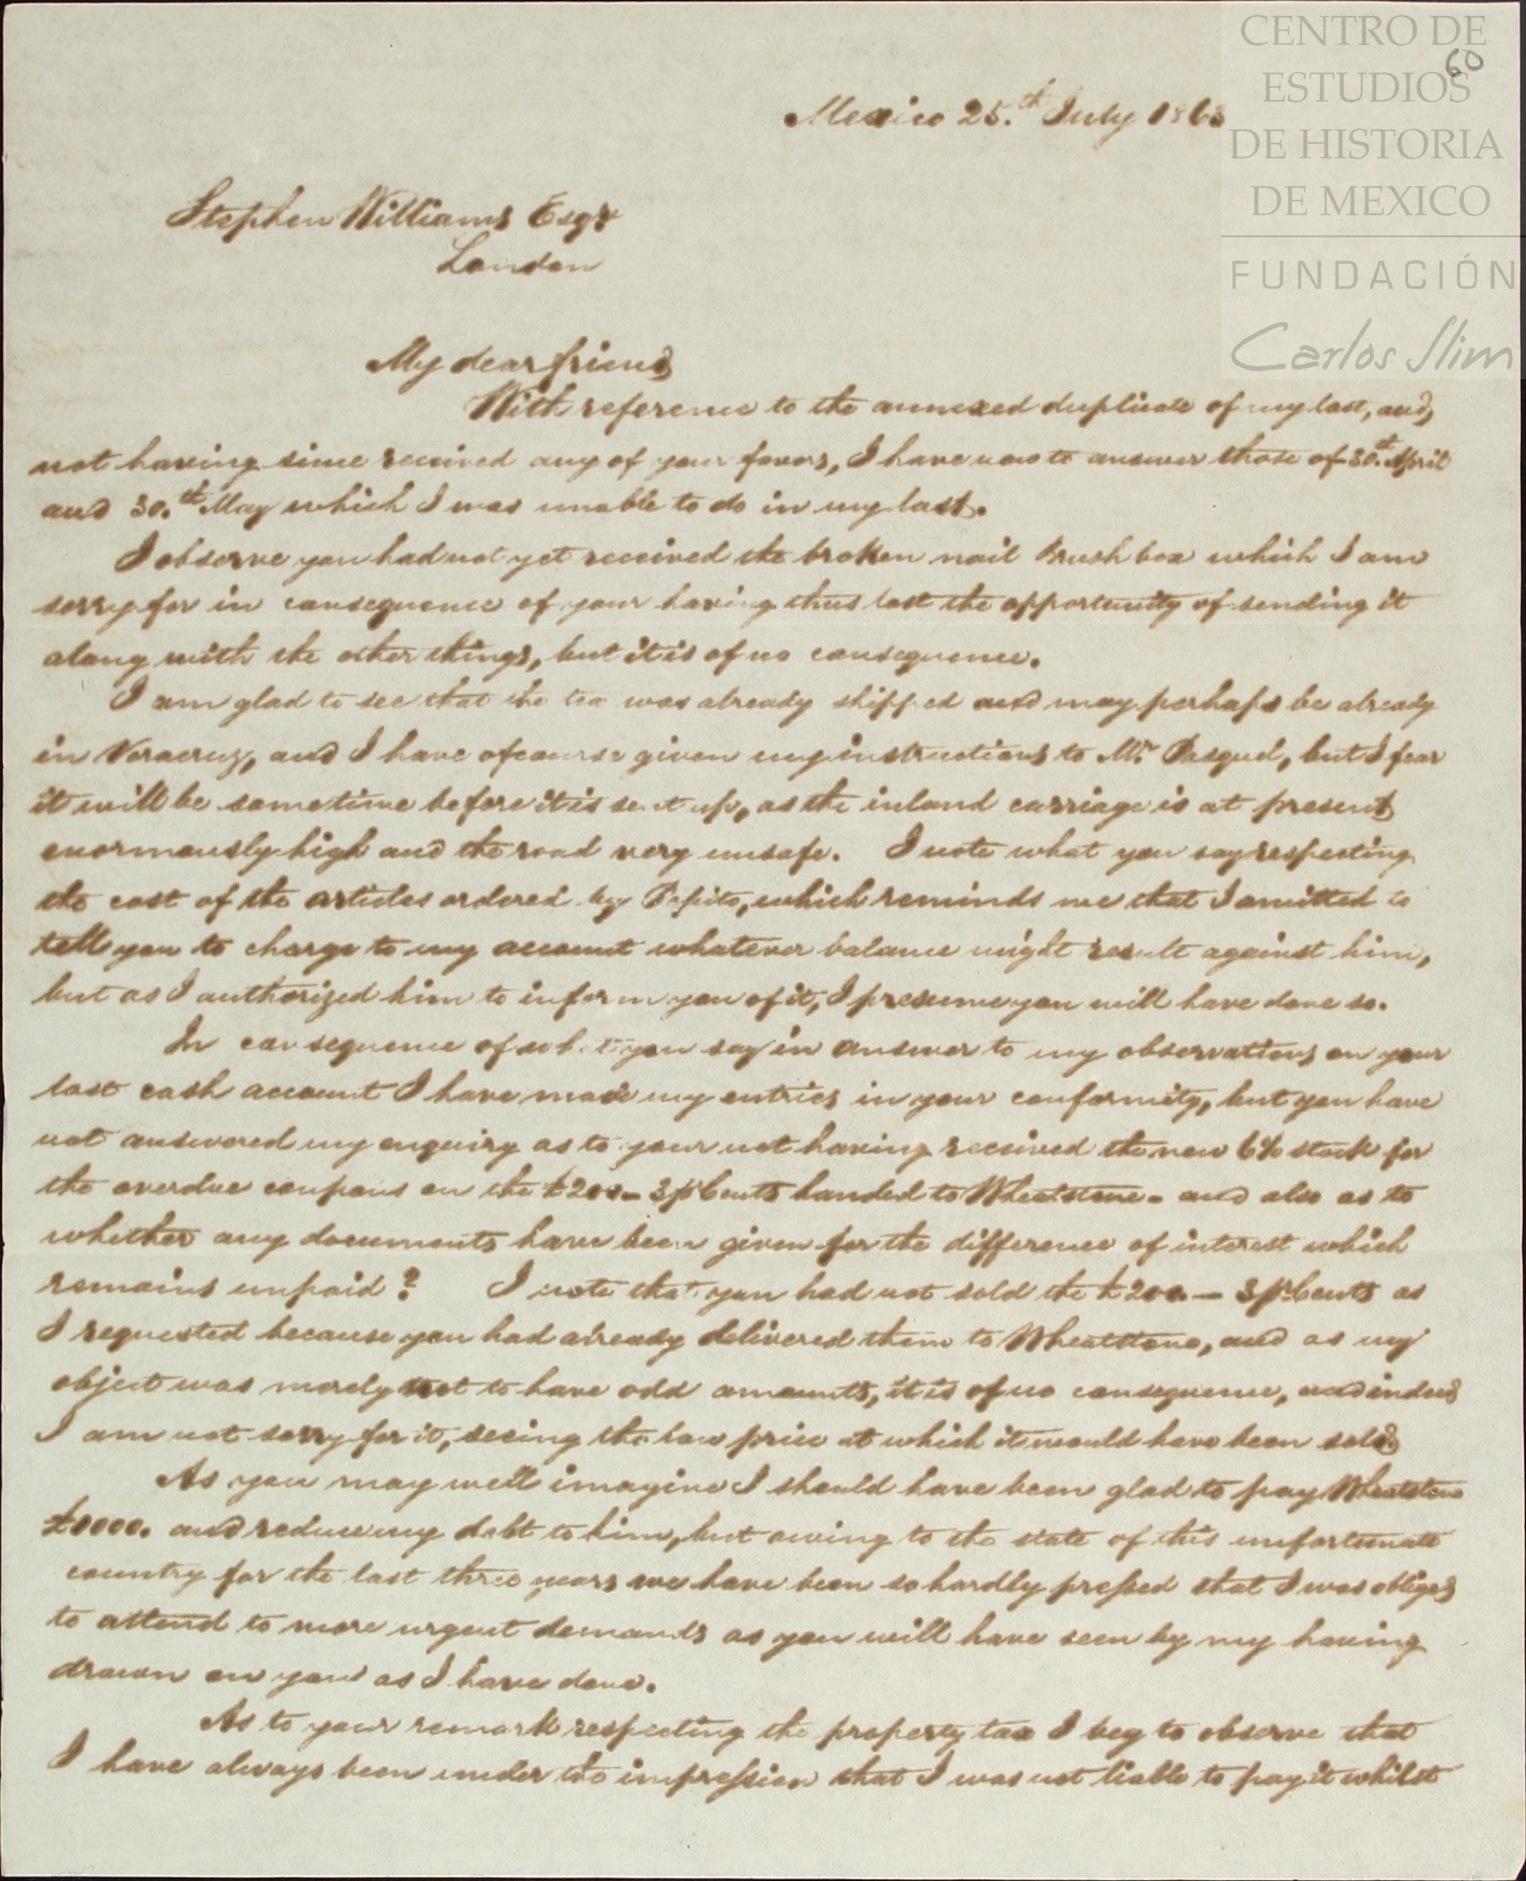 CENTRO DE
ESTUDIOS
DE HISTORIA
DE MEXICO
FUNDACIÓN
Carlos Slim
60
Mexico 25.th July 1863
Stephen Williams Esqr
London
My dear friend
With reference to the annexed duplicate of my last, and
not having since received any of your favors, I have now to answer those of 30.th April
and 30.th May which I was unable to do in my last.
I observe you had not yet received the broken nail Brush box which I am
sorry for in consequence of your having thus lost the opportunity of sending it
along with the other things, but it is of no consequence.
I am glad to see that the tea was already shipped and may perhaps be already
in Veracruz, and I have of course given my instructions to Mr. Pasquel, but I fear
it will be some time before it is sent up, as the inland carriage is at present
enormously high and the road very unsafe. I note what you say respecting
the cost of the articles ordered by Pepito, which reminds me that I omitted to
tell you to charge to my account whatever balance might result against him,
but as I authorized him to inform you of it, I presume you will have done so.
In consequence of what you say in answer to my observations on your
last cash account I have made my entries in your conformity, but you have
not answered my enquiry as to your not having received the new 6% stock for
the overdue coupons on the £200– 3 pr Cents handed to Wheatstone – and also as to
whether any documents have been given for the difference of interest which
remains unpaid? I note that you had not sold the £200 – 3 pr Cents as
I requested because you had already delivered them to Wheatstone, and as my
object was merely not to have odd amounts, it is of no consequence, and indeed
I am not sorry for it, seeing the low price at which it would have been sold
As you may well imagine I should have been glad to pay Wheatstone
and reduce my debt to him, but owing to the state of this unfortunate
country for the last three years we have been so hardly pressed that I was obliged
to attend to more urgent demands as you will have seen by my having
drawn on you as I have done.
As to your remark respecting the property tax I beg to observe that
I have always been under the impression that I was not liable to pay it whilst